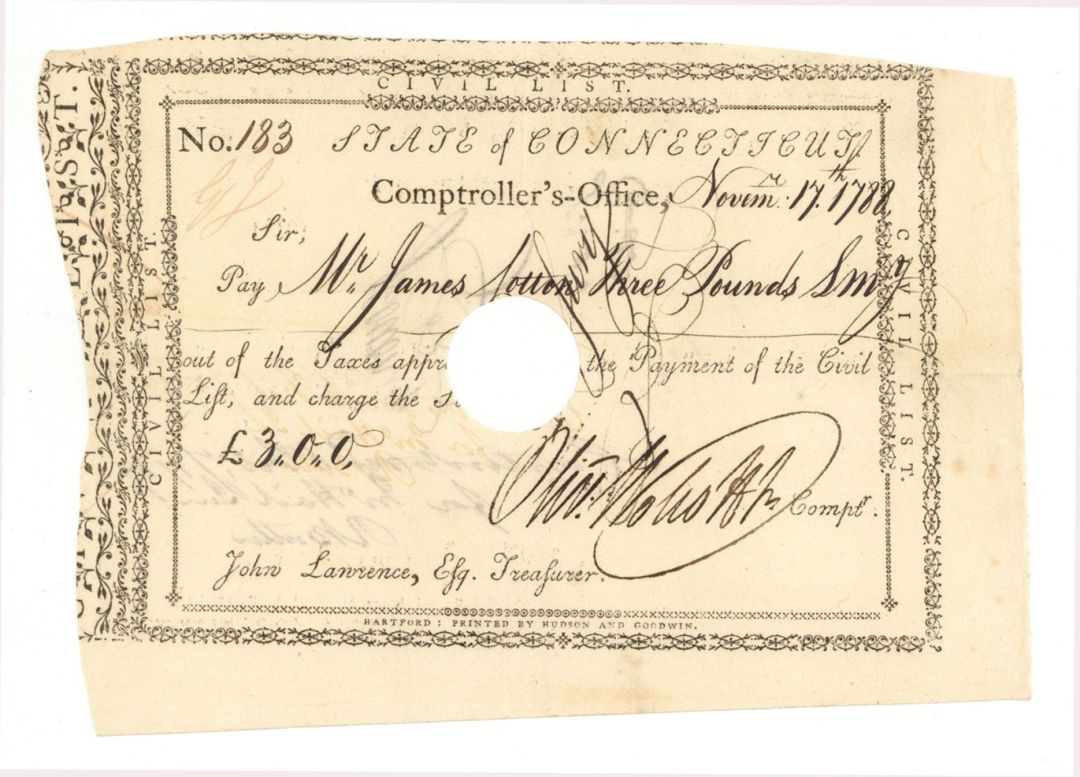 CIVIL LIST.
No. 183 STATE of CONNECTICUT,
Comptroller's-Office, Novemr. 17th. 1788
Sir,
Pay Mr. James Cotton three Pounds Smy
out of the Taxes appr the Payment of the Civil
Lift, and charge the
£ 3,,0,,0,
Olivr. Wolcott Jr. Comptr.
John Lawrence, Efq. Treafurer.
HARTFORD: PRINTED BY HUDSON AND GOODWIN.
CIVIL LIST.
CIVIL LIST.
LIST.